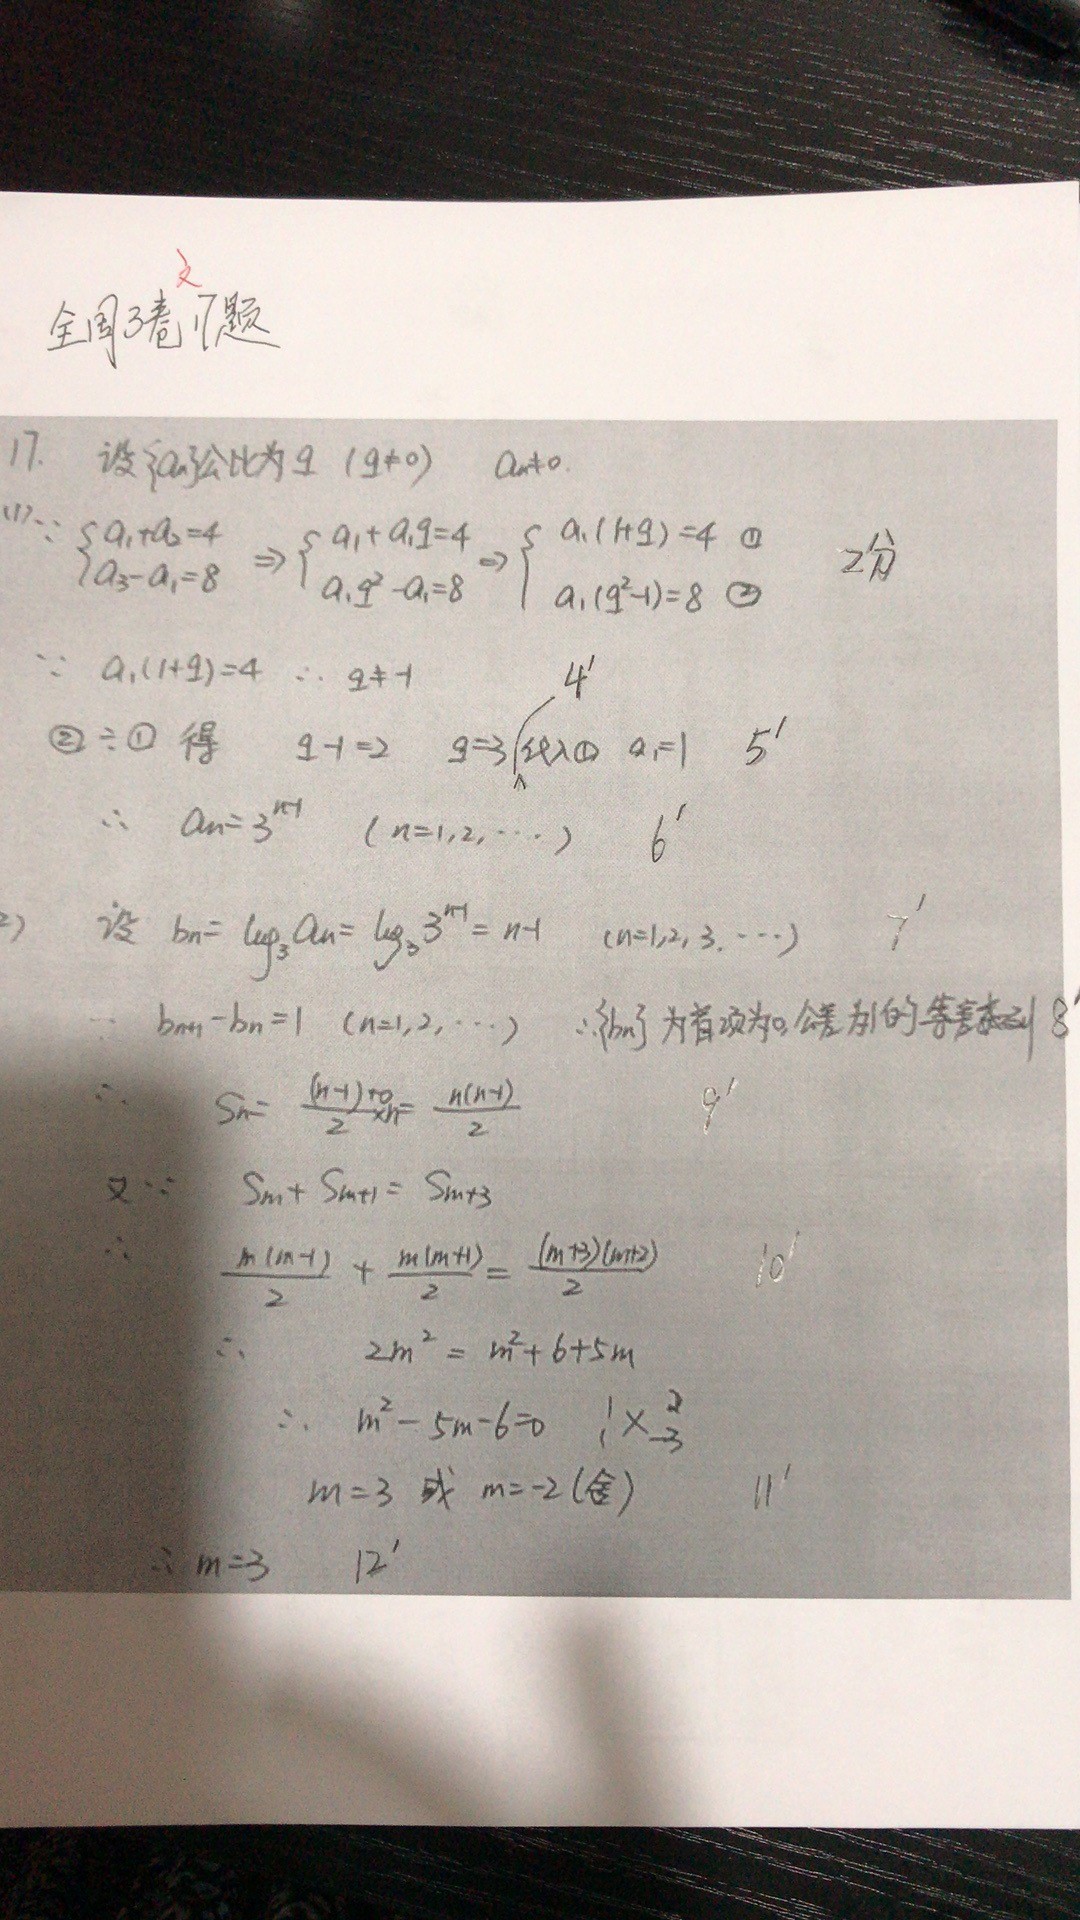 文
全国3卷17题
17. 设{an}公比为q (q≠0) an≠0.
(1)∵ {a₁+a₂=4 a₃-a₁=8 ⇒ {a₁+a₁q=4 a₁q²-a₁=8 ⇒ {a₁(1+q)=4 ① a₁(q²-1)=8 ② 2分
∵ a₁(1+q)=4 ∴ q≠-1 4'
②÷① 得 q-1=2 q=3 代入① a₁=1 5'
∴ an=3ⁿ⁻¹ (n=1,2,⋯) 6'
2) 设 bn=log₃an=log₃3ⁿ⁻¹=n-1 (n=1,2,3,⋯) 7'
∵ bn+1-bn=1 (n=1,2,⋯) ∴{bn}为首项为0,公差为1的等差数列 8'
∴ Sn=((n-1)+0)/2×n=n(n-1)/2 9'
又∵ Sm+Sm+1=Sm+3
∴ m(m-1)/2+m(m+1)/2=(m+3)(m+2)/2 10'
∴ 2m²=m²+6+5m
∴ m²-5m-6=0 1 1 × 2 -3
m=3 或 m=-2(舍) 11'
∴ m=3 12'